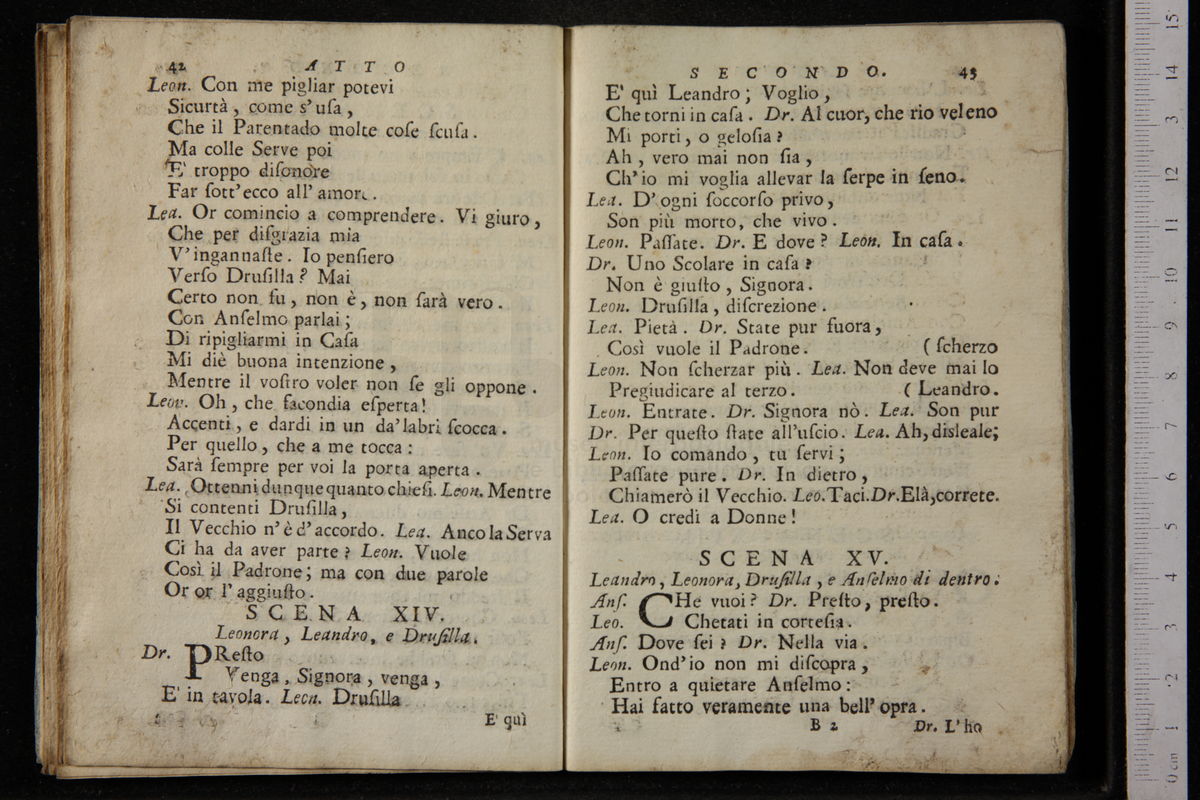 42 A T T O
Leon. Con me pigliar potevi
Sicurtà, come s'uſa,
Che il Parentado molte coſe ſcuſa.
Ma colle Serve poi
E' troppo diſonore
Far ſott'ecco all' amore.
Lea. Or comincio a comprendere. Vi giuro,
Che per diſgrazia mia
V'ingannaſte. Io penſiero
Verſo Druſilla? Mai
Certo non fu, non è, non ſarà vero.
Con Anſelmo parlai;
Di ripigliarmi in Caſa
Mi diè buona intenzione,
Mentre il voſtro voler non ſe gli oppone.
Leov. Oh, che facondia eſperta!
Accenti, e dardi in un da'labri ſcocca.
Per quello, che a me tocca:
Sarà ſempre per voi la porta aperta.
Lea. Ottenni dunque quanto chieſi. Leon. Mentre
Si contenti Druſilla,
Il Vecchio n'è d'accordo. Lea. Anco la Serva
Ci ha da aver parte? Leon. Vuole
Così il Padrone; ma con due parole
Or or l'aggiuſto.
S C E N A XIV.
Leonora, Leandro, e Druſilla.
Dr. PReſto
Venga, Signora, venga,
E' in tavola. Leon. Druſilla
E' quì
S E C O N D O. 43
E' quì Leandro; Voglio,
Che torni in caſa. Dr. Al cuor, che rio veleno
Mi porti, o geloſia?
Ah, vero mai non ſia,
Ch'io mi voglia allevar la ſerpe in ſeno.
Lea. D'ogni ſoccorſo privo,
Son più morto, che vivo.
Leon. Paſſate. Dr. E dove? Leon. In caſa.
Dr. Uno Scolare in caſa?
Non è giuſto, Signora.
Leon. Druſilla, diſcrezione.
Lea. Pietà. Dr. State pur fuora,
Così vuole il Padrone. (ſcherzo
Leon. Non ſcherzar più. Lea. Non deve mai lo
Pregiudicare al terzo. (Leandro.
Leon. Entrate. Dr. Signora nò. Lea. Son pur
Dr. Per queſto ſtate all'uſcio. Lea. Ah, disleale;
Leon. Io comando, tu ſervi;
Paſſate pure. Dr. In dietro,
Chiamerò il Vecchio. Leo. Taci. Dr. Elà, correte.
Lea. O credi a Donne!
S C E N A XV.
Leandro, Leonora, Druſilla, e Anſelmo di dentro.
Anſ. CHe vuoi? Dr. Preſto, preſto.
Leo. Chetati in corteſia.
Anſ. Dove ſei? Dr. Nella via.
Leon. Ond'io non mi diſcopra,
Entro a quietare Anſelmo:
Hai fatto veramente una bell'opra.
B 2 Dr. L'ho